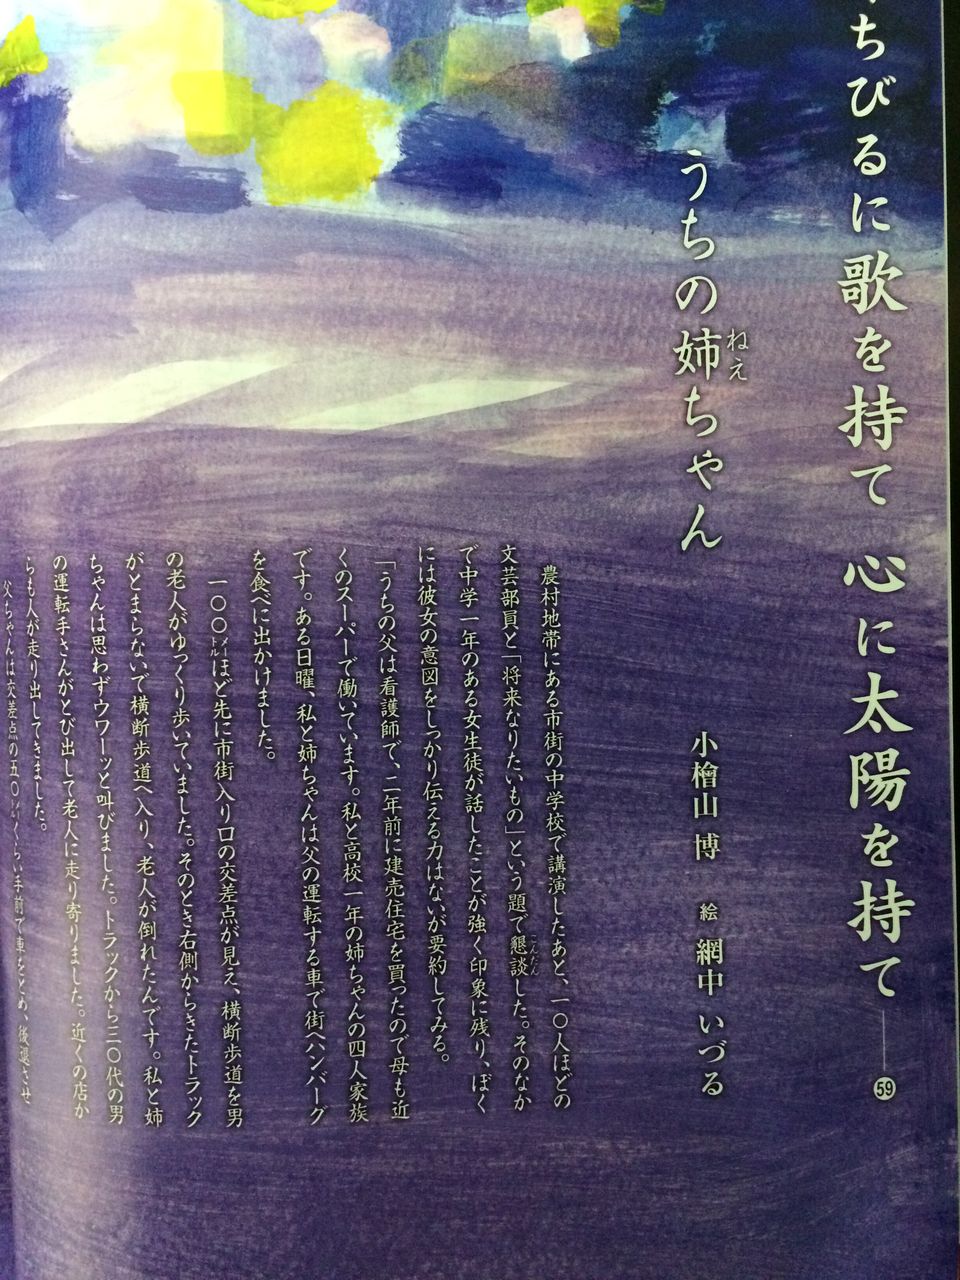 ちびるに歌を持て 心に太陽を持て──59
うちの姉ちゃん
ねえ
小檜山 博 絵 網中 いづる
農村地帯にある市街の中学校で講演したあと、一〇人ほどの
文芸部員と「将来なりたいもの」という題で懇談した。そのなか
こんだん
で中学一年のある女生徒が話したことが強く印象に残り、ぼく
には彼女の意図をしっかり伝える力はないが要約してみる。
「うちの父は看護師で、二年前に建売住宅を買ったので母も近
くのスーパーで働いています。私と高校一年の姉ちゃんの四人家族
です。ある日曜、私と姉ちゃんは父の運転する車で街へハンバーグ
を食べに出かけました。
一〇〇メートルほど先に市街入り口の交差点が見え、横断歩道を男
の老人がゆっくり歩いていました。そのとき右側からきたトラック
がとまらないで横断歩道へ入り、老人が倒れたんです。私と姉
ちゃんは思わずウワーッと叫びました。トラックから三〇代の男
の運転手さんがとび出して老人に走り寄りました。近くの店か
らも人が走り出してきました。
父ちゃんは交差点の五〇メートルくらい手前で車をとめ、後退させ